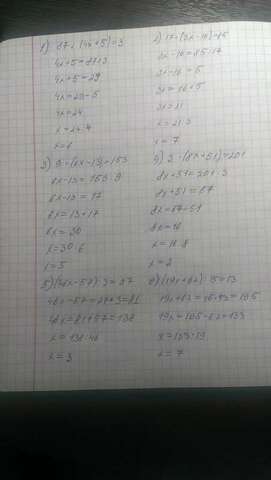 1) 87 : (4x+5)=3
4x+5=87:3
4x+5=29
4x=29-5
4x=24
x=24:4
x=6
2) 17 · (3x-16)=85
3x-16=85:17
3x-16=5
3x=16+5
3x=21
x=21:3
x=7
3) 9 · (6x-13)=153
6x-13=153:9
6x-13=17
6x=13+17
6x=30
x=30:6
x=5
4) 3 · (8x+51)=201
8x+51=201:3
8x+51=67
8x=67-51
8x=16
x=16:8
x=2
5) (46x-57) : 3=27
46x-57=27·3=81
46x=81+57=138
x=138:46
x=3
6) (19x+62) : 15=13
19x+62=15·13=195
19x=195-62=133
x=133:19
x=7